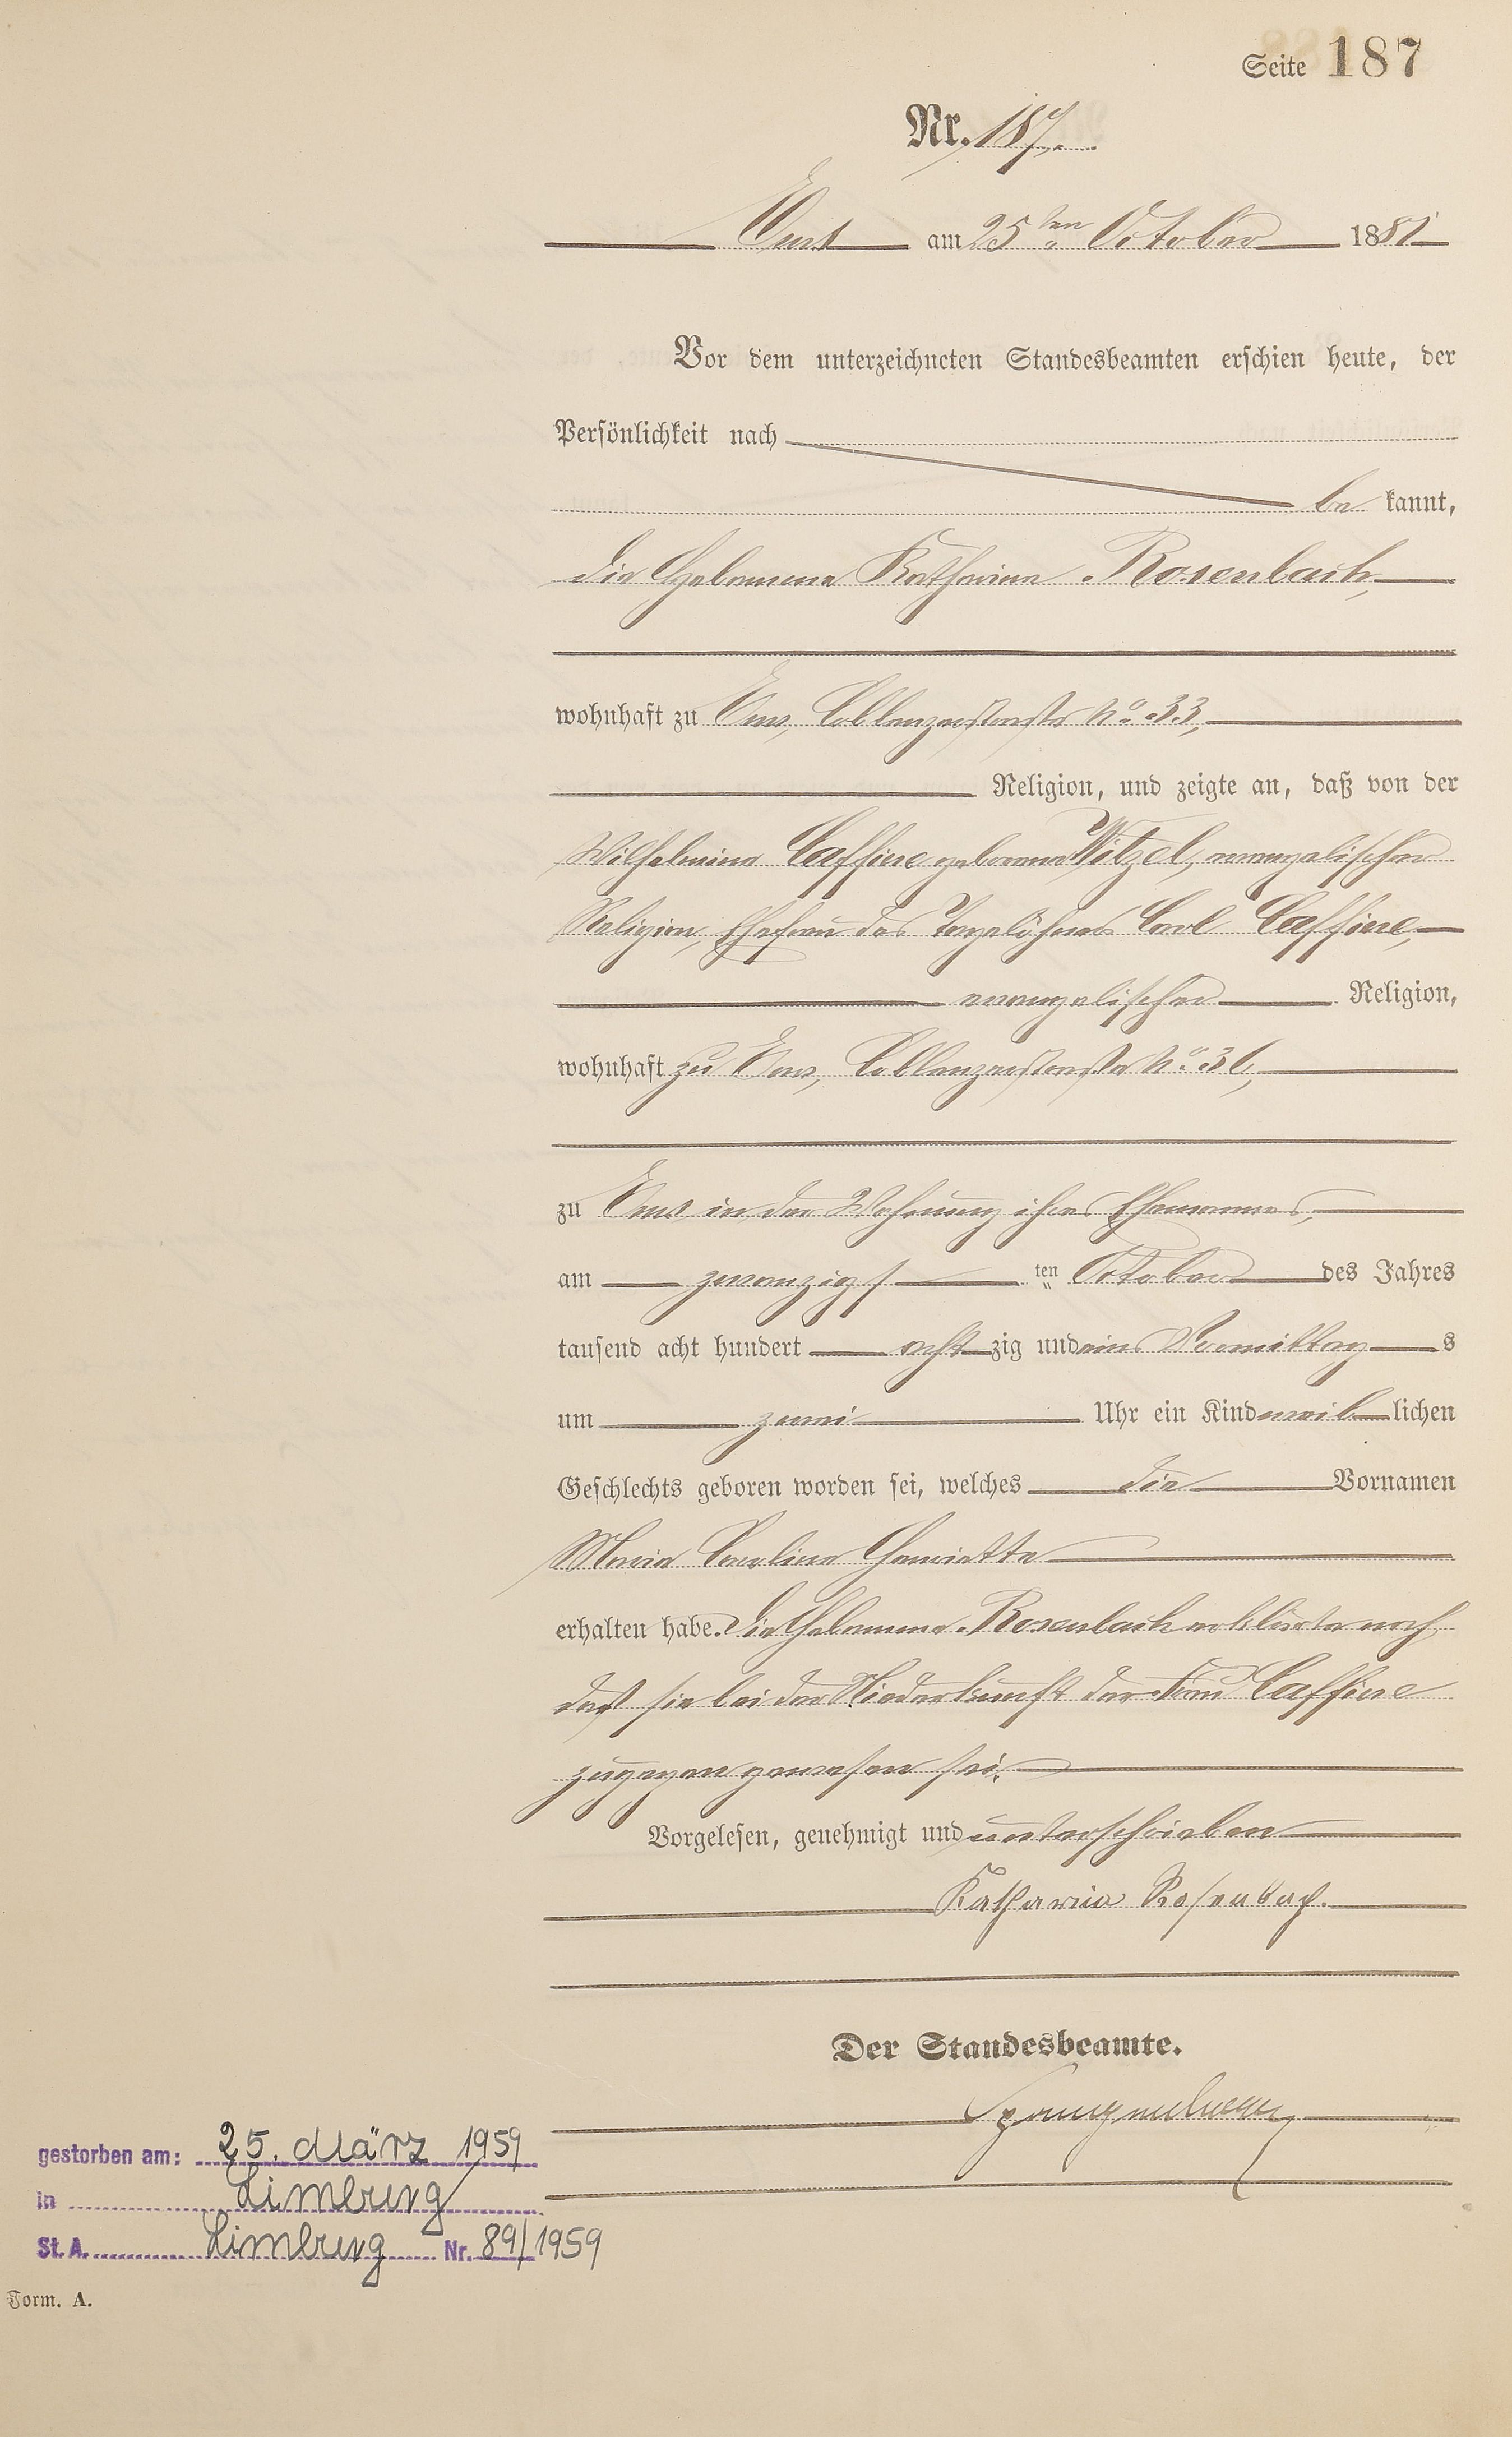 Seite 187
Nr. 187.
Ems am 25ten October 1881
Vor dem unterzeichneten Standesbeamten erschien heute, der
Persönlichkeit nach
be kannt,
die Hebamme Katharina Rosenbach,
wohnhaft zu Ems, Coblenzerstraße No. 33,
Religion, und zeigte an, daß von der
Wilhelmine Caffine geborene Witzel, evangelischer
Religion, Ehefrau des Tagelöhners Carl Caffine,
evangelischer Religion,
wohnhaft zu Ems, Coblenzerstraße No. 36,
zu Ems in der Wohnung ihres Ehemannes,
am zwanzigsten October des Jahres
tausend acht hundert achtzig und eins Vormittags
um zwei Uhr ein Kind weiblichen
Geschlechts geboren worden sei, welches die Vornamen
Maria Carolina Henriette
erhalten habe. Die Hebamme Rosenbach erklärte noch,
daß sie bei der Niederkunft der Frau Caffine
zugegen gewesen sei.
Vorgelesen, genehmigt und unterschrieben
Katharina Rosenbach.
Der Standesbeamte.
gestorben am: 25. März 1959
in Limburg
St. A. Limburg Nr. 89/1959
Form. A.